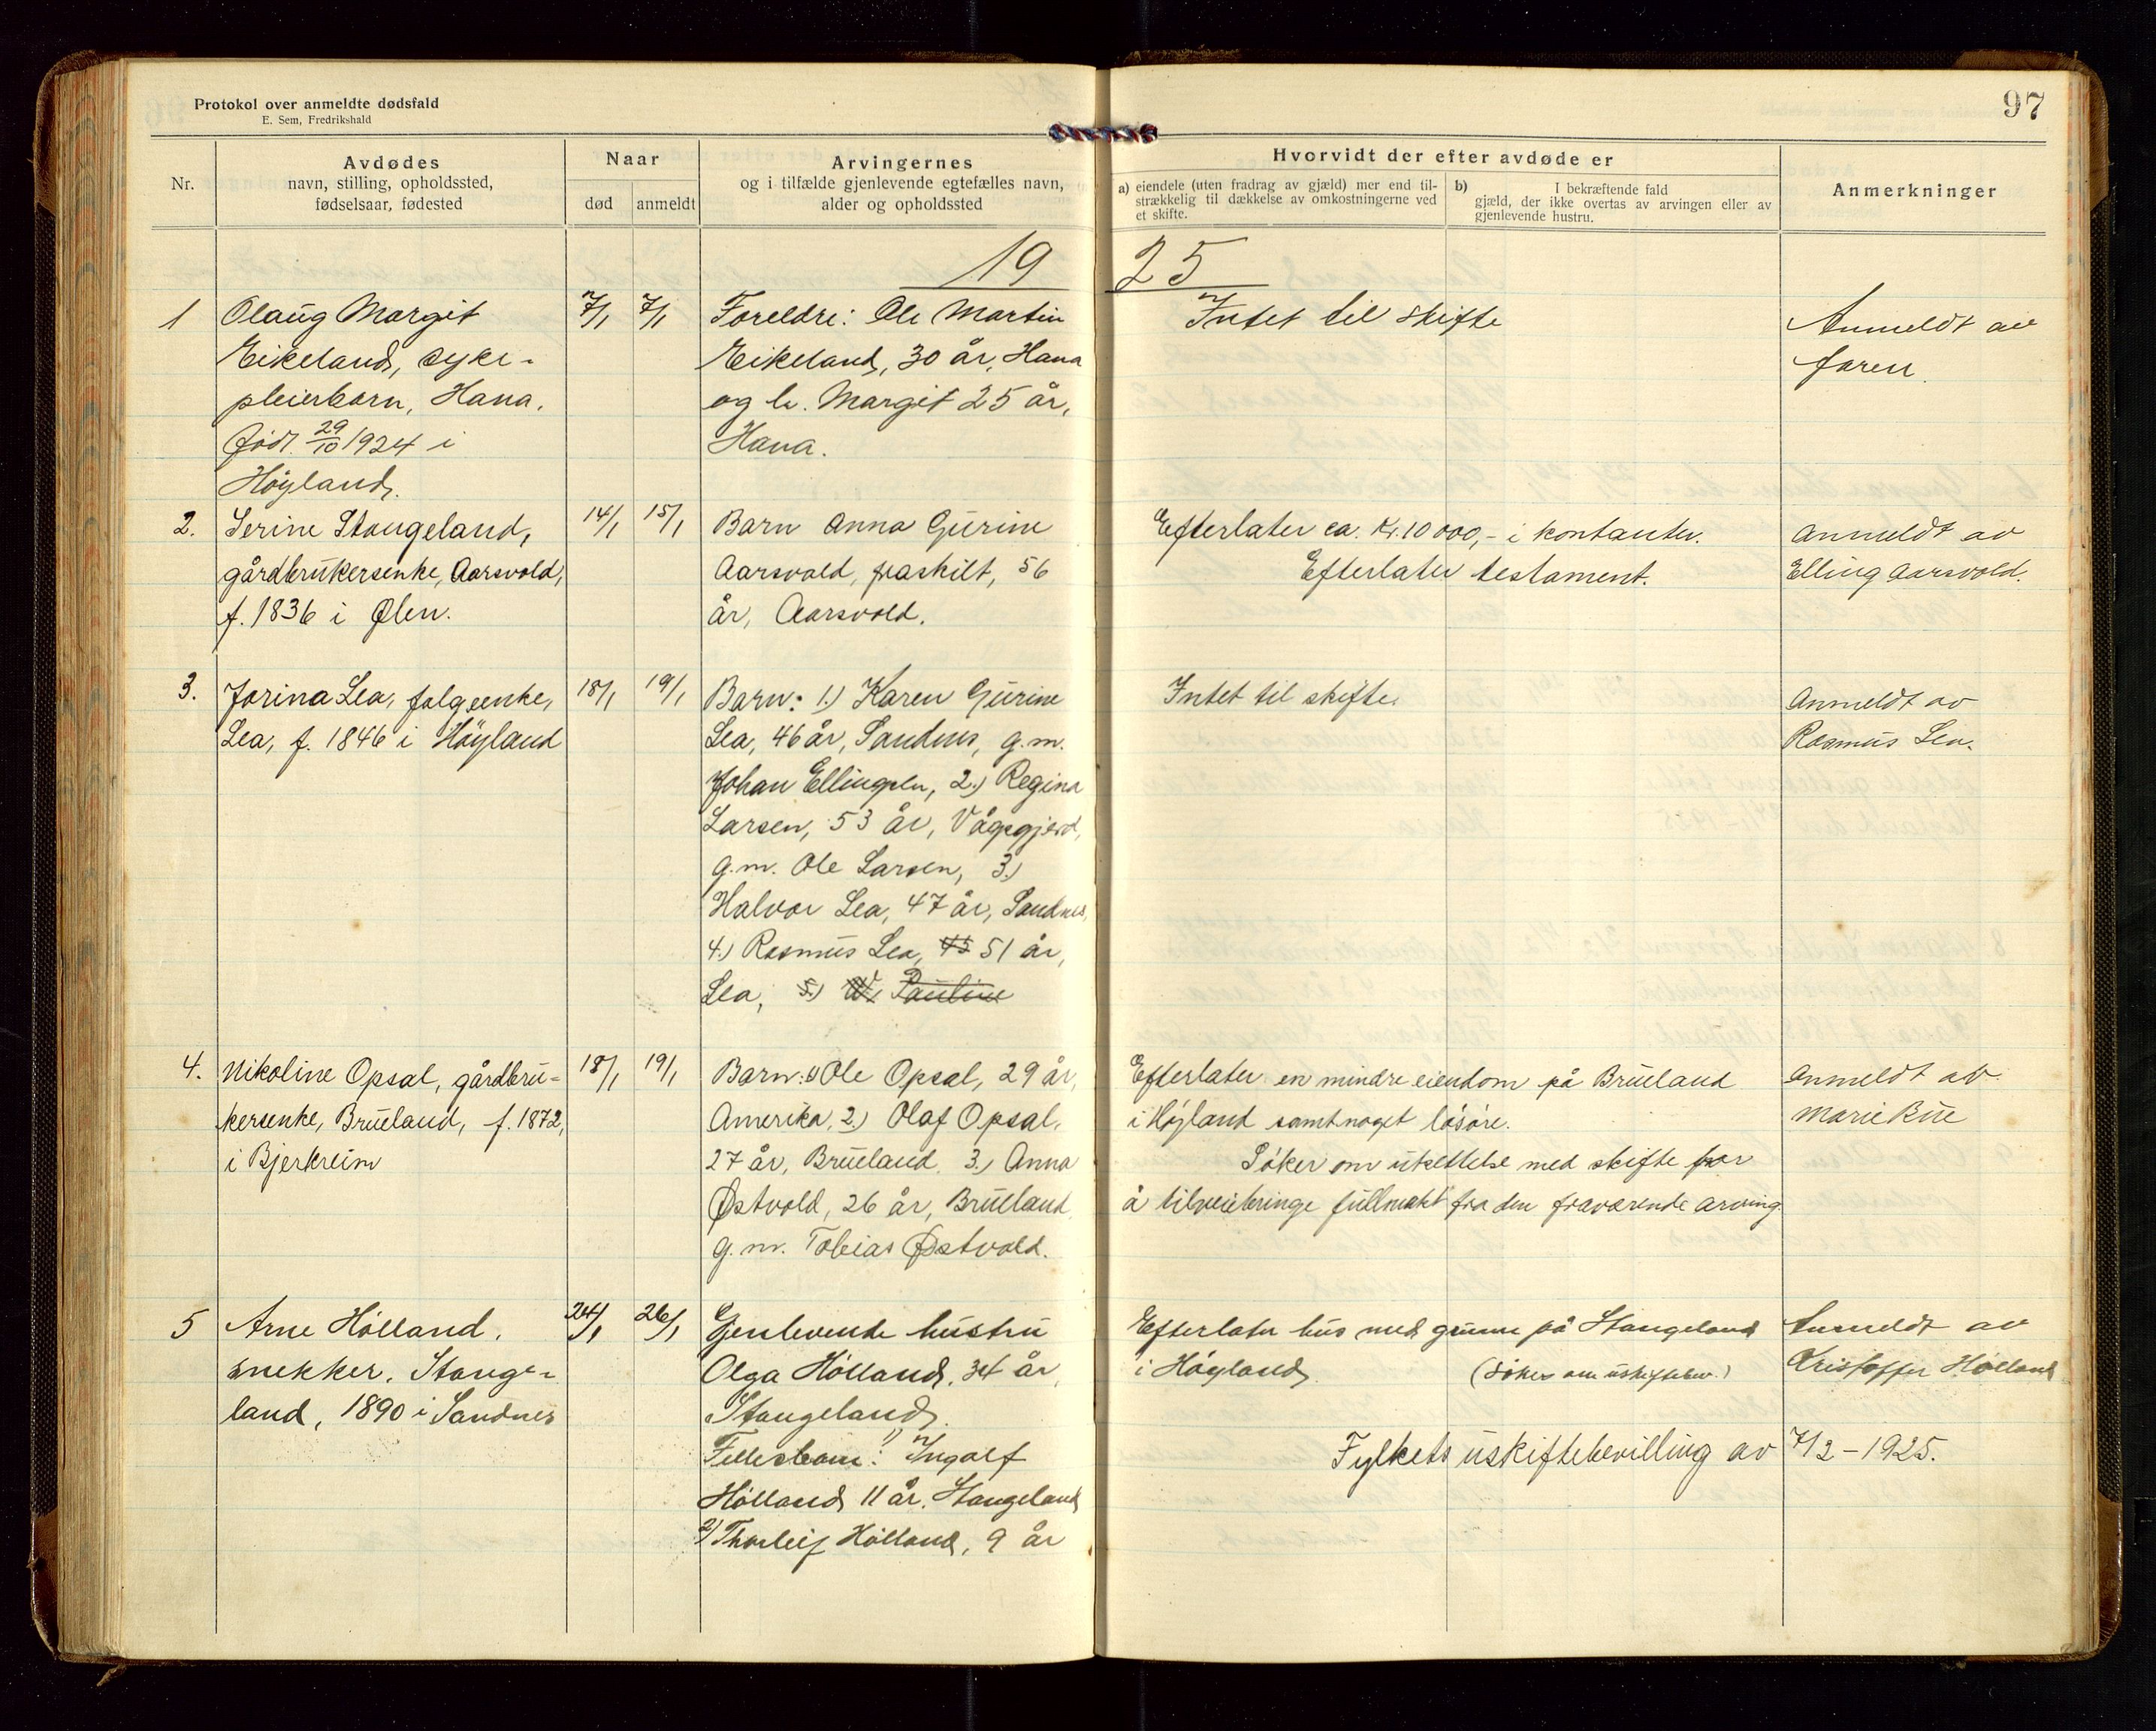 97
Protokol over anmeldte dødsfald
E. Sem, Fredrikshald
Nr.
Avdødes
navn, stilling, opholdssted,
fødselsaar, fødested
Naar
død
anmeldt
Arvingernes
og i tilfælde gjenlevende egtefælles navn,
alder og opholdssted
Hvorvidt der efter avdøde er
a) eiendele (uten fradrag av gjæld) mer end til-
strækkelig til dækkelse av omkostningerne ved
et skifte.
b) I bekræftende fald
gjæld, der ikke overtas av arvingen eller av
gjenlevende hustru.
Anmerkninger
19 25
1
Olaug Margit
Eikeland, syke-
pleierbarn, Hana.
født 29/10 1924 i
Høyland.
7/1
7/1
Foreldre: Ole Martin
Eikeland, 30 år, Hana
og h. Margit 25 år,
Hana.
Intet til skifte
Anmeldt av
faren.
2.
Serine Stangeland,
gårdbrukerenke, Aarsvold,
f. 1836 i Ølen.
14/1
15/1
Barn Anna Gurine
Aarsvold, fraskilt, 56
år, Aarsvold.
Efterlater ca. Kr. 10 000,- i kontanter.
Efterlater testament.
Anmeldt av
Elling Aarsvold.
3.
Jorina Lea, folgeenke,
Lea, f. 1846 i Høyland
18/1
19/1
Barn: 1.) Karen Gurine
Lea, 46 år, Sandnes, g.m.
Johan Ellingsen, 2.) Regina
Larsen, 53 år, Vågsgjerd,
g.m. Ole Larsen, 3.)
Halvor Lea, 47 år, Sandnes,
4.) Rasmus Lea, 45 51 år,
Lea, 5.) Pauline
Intet til skifte.
Anmeldt av
Rasmus Lea.
4.
Nikoline Opsal, gårdbru-
kerenke, Brueland, f. 1872,
i Bjerkreim
18/1
19/1
Barn: 1) Ole Opsal, 29 år,
Amerika, 2.) Olaf Opsal,
27 år, Brueland. 3.) Anna
Østvold, 26 år, Brueland
g.m. Tobias Østvold.
Efterlater en mindre eiendom på Brueland
i Høyland samt noget løsøre.
Søker om utsettelse med skifte for
å tilveiebringe fullmakt fra den fraværende arving
Anmeldt av
Marie Bue
5
Arne Hølland,
snekker, Stange-
land, 1890 i Sandnes
24/1
26/1
Gjenlevende hustru
Olga Hølland, 34 år,
Stangeland.
Fellesbarn: 1) Ingolf
Hølland 11 år, Stangeland
2) Thorleif Hølland, 9 år
Efterlater hus med grunn på Stangeland
i Høyland. (Søker om uskiftebev.)
Fylkets uskiftebevilling av 7/2 - 1925.
Anmeldt av
Kristoffer Hølland